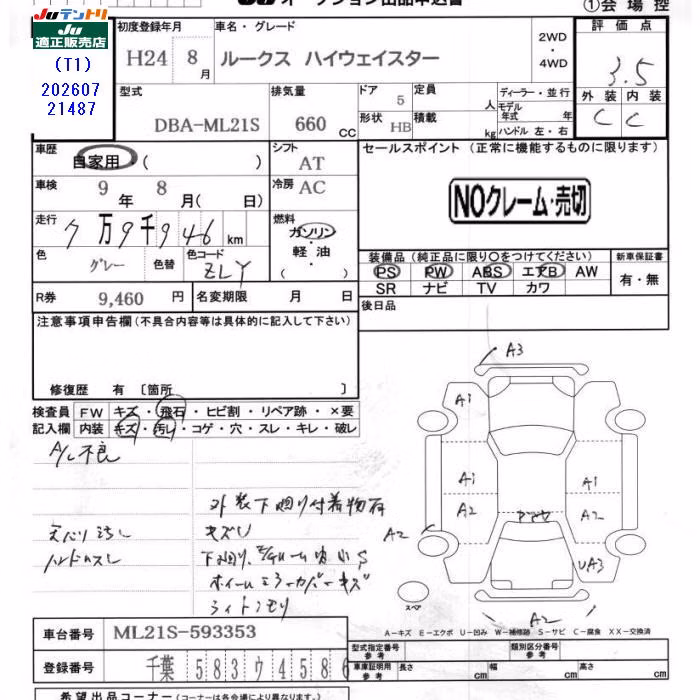 JU オークション出品申込書
①会場控
JUテントリ
JU 適正販売店
(T1)
202607
21487
初度登録年月
車名・グレード
評価点
H24 8月
ルークス ハイウェイスター
2WD・4WD
3.5
型式
排気量
ドア 5
定員 人
ディーラー・並行
外装 内装
DBA-ML21S
660 CC
形状 HB
積載 kg
モデル年式 年
ハンドル 左・右
C C
車歴 自家用 ( )
シフト AT
セールスポイント (正常に機能するものに限ります)
車検 9年 8月( 日)
冷房 AC
NOクレーム・売切
走行 7万9千946km
燃料 ガソリン・軽油・( )
色 グレー 色替 色コード ZLY
装備品(純正品に限り○をつけてください)
新車保証書
PS PW ABS エアB AW
有・無
SR ナビ TV カワ
R券 9,460 円 名変期限 月 日
後日品
注意事項申告欄(不具合内容等は具体的に記入して下さい)
修復歴 有 〔箇所 〕
検査員記入欄
FW キズ・飛石・ヒビ割・リペア跡・×要
内装 キズ・汚レ・コゲ・穴・スレ・キレ・破レ
A/C不良
外装下廻り付着物有
キズU
ハンドルスレ
ライトクモリ
A3
A1
A1 A1
A2 A2
A2
UA3
A2
スペア
A-キズ E-エクボ U-凹み W-補修跡 S-サビ C-腐食 XX-交換済
車台番号 ML21S-593353
型式指定番号 参考
類別区分番号 参考
登録番号 千葉 583 ワ 4586
車庫証明用 参考 長さ cm 幅 cm 高さ cm
希望出品コーナー(コーナーは各会場により異なります。)